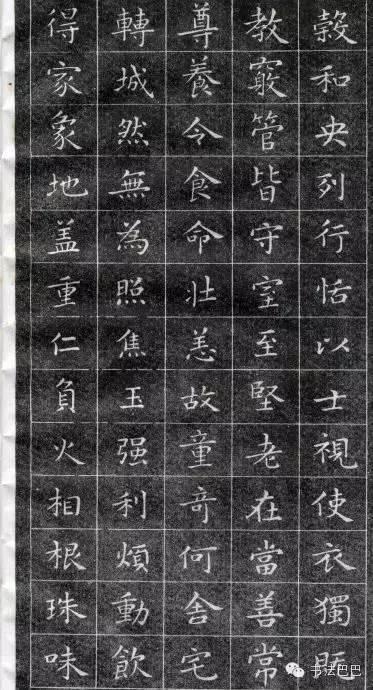 穀和央列行恬以士視使衣獨既
教竅管皆守室至堅老在當善常
尊養令食命壯恙故童奇何舍宅
轉城然無為照焦玉强利煩動飲
得家象地盖重仁負火相根珠味
书法巴巴